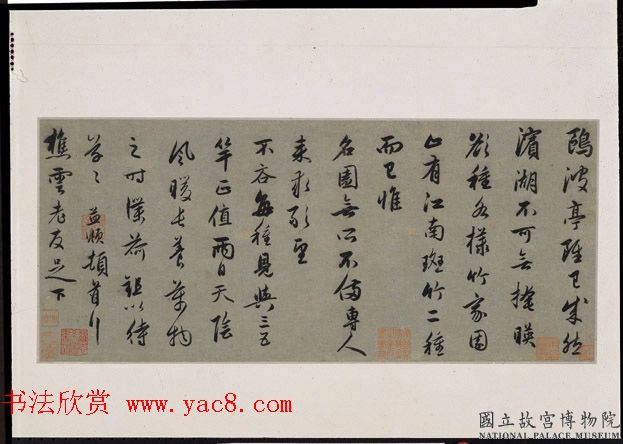 鷗波亭雖已成然
濱湖不可無掩映
欲種各樣竹家園
止有江南斑竹二種
而已惟
名園無所不備專人
來求
不吝每種見與三五
竿正值兩日天陰
風暖長養萬物
之時謹荷鉏以待
草々 益顒頓首
樵雲老友足下
书法欣赏 www.yac8.com
國立故宮博物院
NATIONAL PALACE MUSEUM